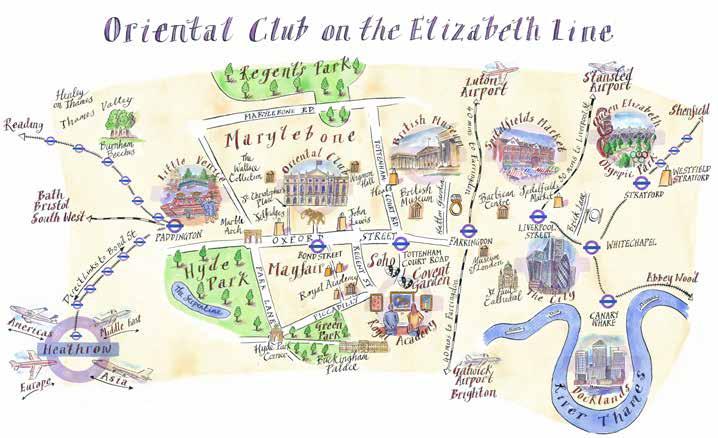 Oriental Club on the Elizabeth Line
Regent's Park
Luton
Airport
Stansted
Airport
Henley
on Thames
Thames Valley
Burnham
Beeches
Reading
MARYLEBONE RD.
Marylebone
The
Wallace
Collection
Oriental Club
Wigmore
Hall
St. Christopher's
Place
Selfridges
John
Lewis
Marble
Arch
Little Venice
Bath
Bristol
South West
PADDINGTON
Direct links to Bond St
OXFORD STREET
TOTTENHAM
COURT ROAD
British Museum
British
Museum
Hatton Garden
40 mins to Farringdon
Spitalfields Market
Barbican
Centre
Spitalfields
Market
50 mins to Liverpool St
Queen Elizabeth
Olympic Park
Shenfield
WESTFIELD
STRATFORD
STRATFORD
Brick Lane
LIVERPOOL
STREET
WHITECHAPEL
FARRINGDON
Museum
of London
St Paul's
Cathedral
The City
Abbey Wood
CANARY
WHARF
Docklands
River Thames
Hyde
Park
The Serpentine
PARK LANE
BOND STREET
Mayfair
REGENT ST
Royal Academy
PICCADILLY
Soho
TOTTENHAM
COURT ROAD
Covent
Garden
Academy
Green
Park
Hyde Park
Corner
Buckingham
Palace
40 mins to Farringdon
Gatwick
Airport
Brighton
Americas
Middle East
Heathrow
Europe
Asia